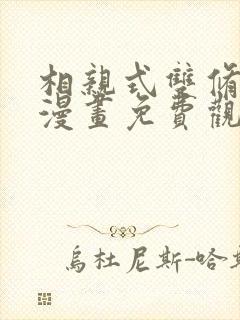 相親式雙脩
漫畫免費觀
烏杜尼斯-哈